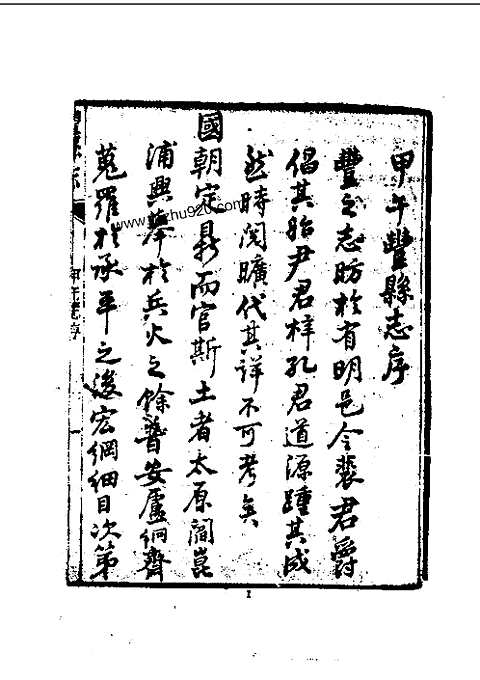 甲午豐縣志序
豐之志昉於有明邑令裴君爵
倡其始尹君梓孔君道源踵其成
然時閱曠代其詳不可考矣
國朝定鼎而官斯土者太原閻崑
浦興舉於兵火之餘普安盧絅齋
蒐羅於承平之後宏綱細目次第
1